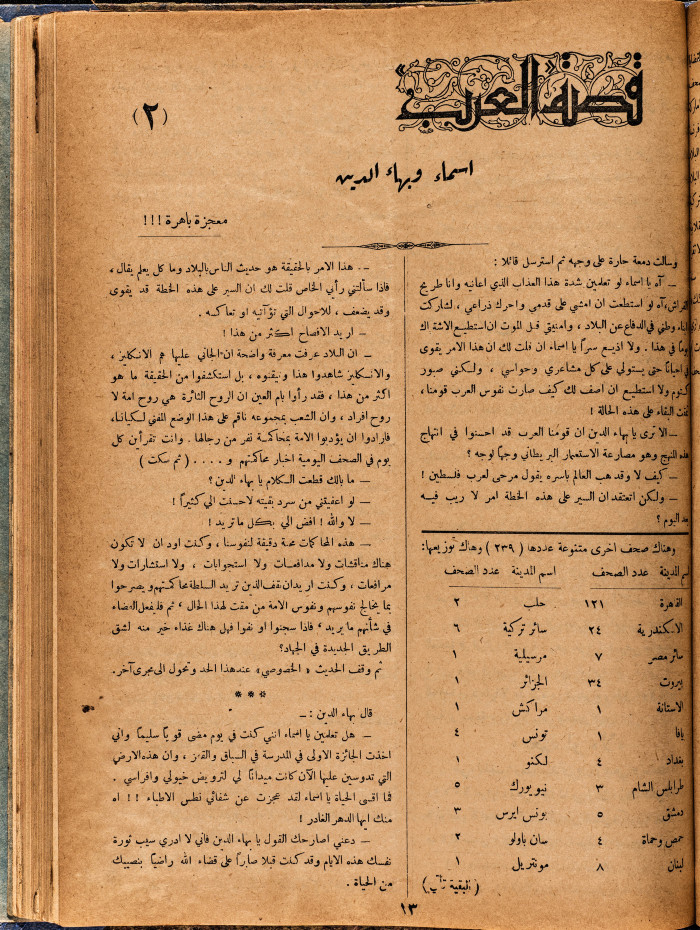 قصة العرب
(٢)
اسماء وبهاء الدين
معجزة باهرة !!!
وسالت دمعة حارة على وجهه ثم استرسل قائلا :
ـ آه يا اسماء لو تعلمين شدة هذا العذاب الذي اعانيه وانا طريح
الفراش، آه لو استطعت ان امشي على قدمي واحرك ذراعي ، لشاركت
ابناء وطني في الدفاع عن البلاد ، وامنيتي قبل الموت ان استطيع الاشتراك
يوماً في هذا . ولا اذيع سراً يا اسماء ان قلت لك ان هذا الامر يقوى
احياناً حتى يستولي على كل مشاعري وحواسي ، ولكني صبور
كتوم ولا استطيع ان اصف لك كيف صارت نفوس العرب قومنا،
البقاء على هذه الحالة !
ـ الا ترى يا بهاء الدين ان قومنا العرب قد احسنوا في انتهاج
هذا النهج وهو مصارعة الاستعمار البريطاني وجهاً لوجه ؟
ـ كيف لا وقد هب العالم باسره يقول مرحى لعرب فلسطين !
ـ ولكن اتعتقد ان السير على هذه الخطة امر لا ريب فيه
بعد اليوم ؟
وهناك صحف اخرى متنوعة عددها ( ٢٣٩ ) وهناك توزيعها:
اسم المدينة عدد الصحف اسم المدينة عدد الصحف
القاهرة ١٢١ حلب ٢
الاسكندرية ٢٤ سائر تركية ٦
سائر مصر ٧ مرسيلية ١
بيروت ٣٤ الجزائر ١
الاستانة ١ مراكش ١
يافا ١ تونس ٤
بغداد ٤ لكنو ١
طرابلس الشام ٣ نيويورك ٥
دمشق ٥ بونس ايرس ٣
حمص وحماة ٤ سان باولو ٢
لبنان ٨ مونتريل ١
(البقية تأتي)
ـ . هذا الامر بالحقيقة هو حديث الناس بالبلاد وما كل يعلم يقال ،
فاذا سألتني رأيي الخاص قلت لك ان السير على هذه الخطة قد يقوى
وقد يضعف ، للاحوال التي تؤآتيه او تعاكسه .
ـ اريد الافصاح اكثر من هذا !
ـ ان البلاد عرفت معرفة واضحة ان الجاني عليها هم الانكليز ،
والانكليز شاهدوا هذا وتيقنوه ، بل استكشفوا من الحقيقة ما هو
اكثر من هذا ، فقد رأوا بام العين ان الروح الثائرة هي روح امة لا
روح افراد ، وان الشعب بمجموعه ناقم على هذا الوضع المفني لكياننا،
فارادوا ان يؤدبوا الامة بمحاكمة نفر من رجالها . وانت تقرأين كل
يوم في الصحف اليومية اخبار محاكمتهم و . . . . ( ثم سكت )
ـ ما بالك قطعت الكلام يا بهاء الدين ؟
ـ لو اعفيتني من سرد بقيته لاحسنت الي كثيراً !
ـ لا والله ! افض الي بكل ما تريد !
ـ هذه المحاكمات محنة دقيقة لنفوسنا ، وكنت اود ان لا تكون
هناك مناقشات ولا مدافعات ولا استجوابات ، ولا استشارات ولا
مرافعات ، وكنت اريد ان يقف الذين تريد السلطة محاكمتهم ويصرحوا
بما يخالج نفوسهم ونفوس الامة من مقت لهذا الحال ، ثم فليفعل القضاء
في شأنهم ما يريد ، فاذا سجنوا او نفوا فهل هناك غذاء خير منه لشق
الطريق الجديدة في الجهاد؟
ثم وقف الحديث « الخصوصي » عند هذا الحد وتحول الى مجرى آخر.
* * *
قال بهاء الدين : ـ
ـ هل تعلمين يا اسماء انني كنت في يوم مضى قوياً سليماً واني
اخذت الجائزة الاولى في المدرسة في السباق والقفز ، وان هذه الارض
التي تدوسين عليها الآن كانت ميداناً لي لترويض خيولي وافراسي .
فما اقسى الحياة يا اسماء لقد عجزت عن شفائي نطس الاطباء !! اه
منك ايها الدهر الغادر !
ـ دعني اصارحك القول يا بهاء الدين فاني لا ادري سبب ثورة
نفسك هذه الايام وقد كنت قبلا صابراً على قضاء الله راضياً بنصيبك
من الحياة .
١٣